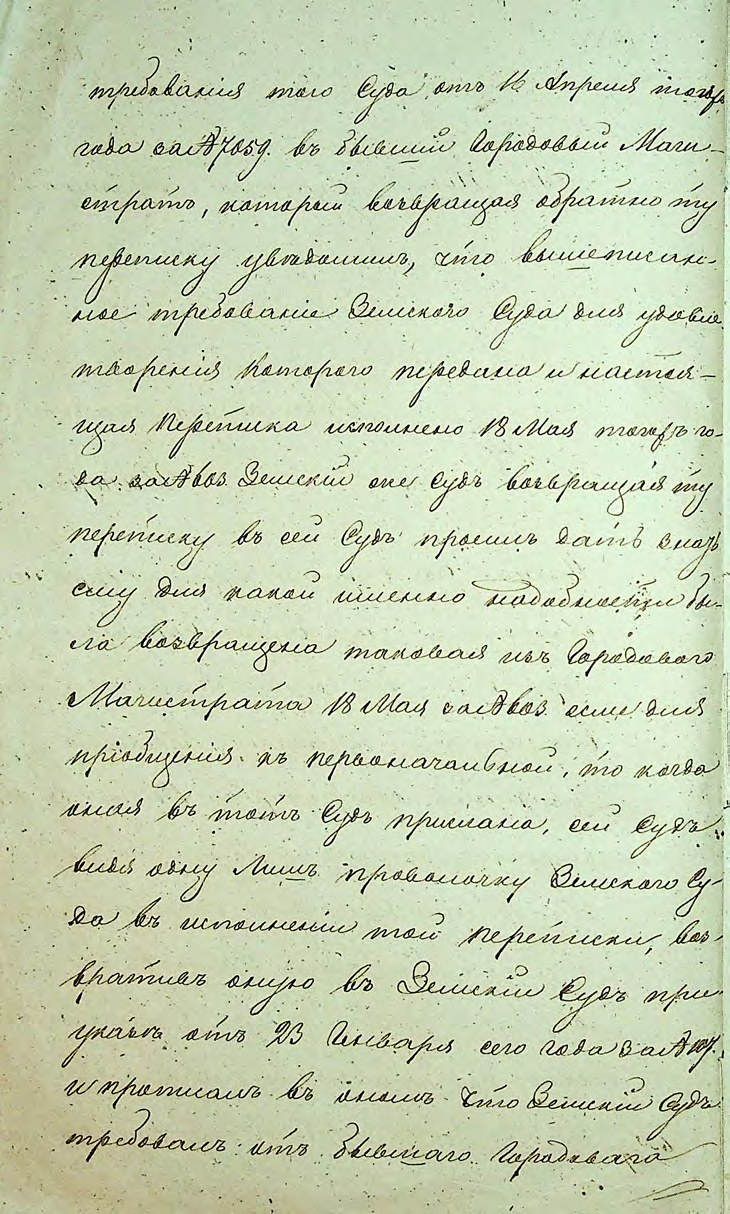 требованія того Суда отъ 16 Апреля тогожъ
года за № 7059. въ бывшій Городовый Маги-
стратъ, который возвращая обратно ту
переписку увѣдомилъ, что вышеписан-
ное требованіе Земского Суда для удовле
творенія которого передана и настоя-
щая переписка исполнено 18 Мая тогожъ го-
да за № 603. Земскій же Судъ возвращая ту
переписку въ сей Судъ просилъ дать знать
ему для какой именно надобности бы-
ла возвращена таковая изъ Городового
Магистрата 18 Мая за № 603 если для
пріобщенія къ первоначальной, то когда
оная въ тотъ Судъ прислана, сей Судъ
видя одну лишъ проволочку Земского Су-
да въ исполненіи той переписки, воз-
вративъ оную въ Земскій Судъ при
указѣ отъ 23 Генваря сего года за № 107.
и прописалъ въ ономъ что Земскій Судъ
требовалъ отъ бывшаго Городоваго